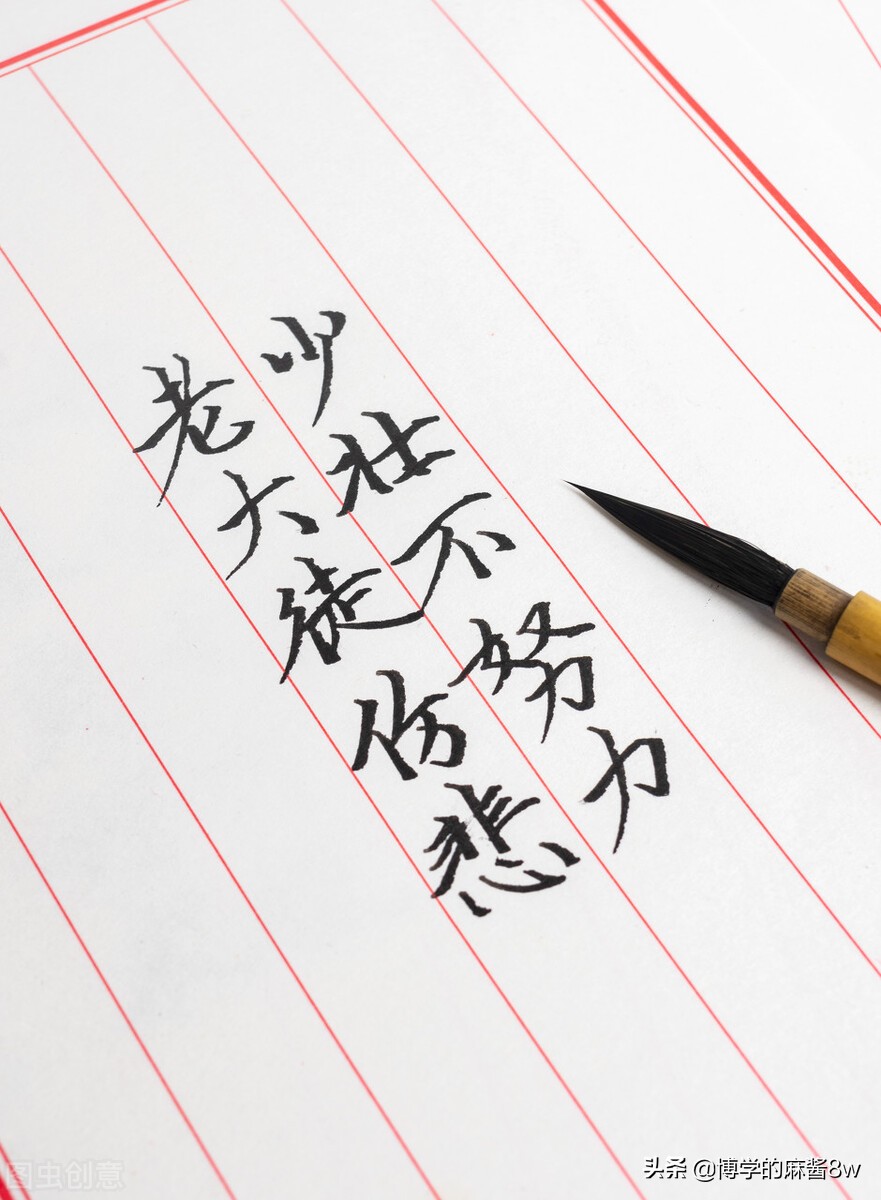 少壮不努力
老大徒伤悲
图虫创意
头条 @博学的麻酱8w